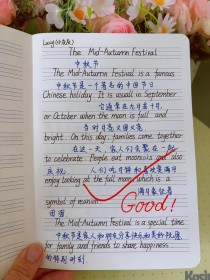 Lucy(小灰灰)
The Mid-Autumn Festival
中秋节
The Mid-Autumn Festival is a famous
中秋节是一个著名的中国节日
Chinese holiday. It is usuall in September
它通常在九月或十月
or October when the moon is full and
当时月亮又圆又亮
bright. On this day, families come together
在这一天,家人们会聚在一起
to celebrate. People eat mooncakes and also
庆祝 人们吃月饼和
enjoy looking at the full moon which is a
满月象征着
symbol of reunion.
团圆
Good!
The Mid-Autumn Festival is a special time
中秋节是家人和朋友分享快乐
for family and friends to share happiness
的特别时刻